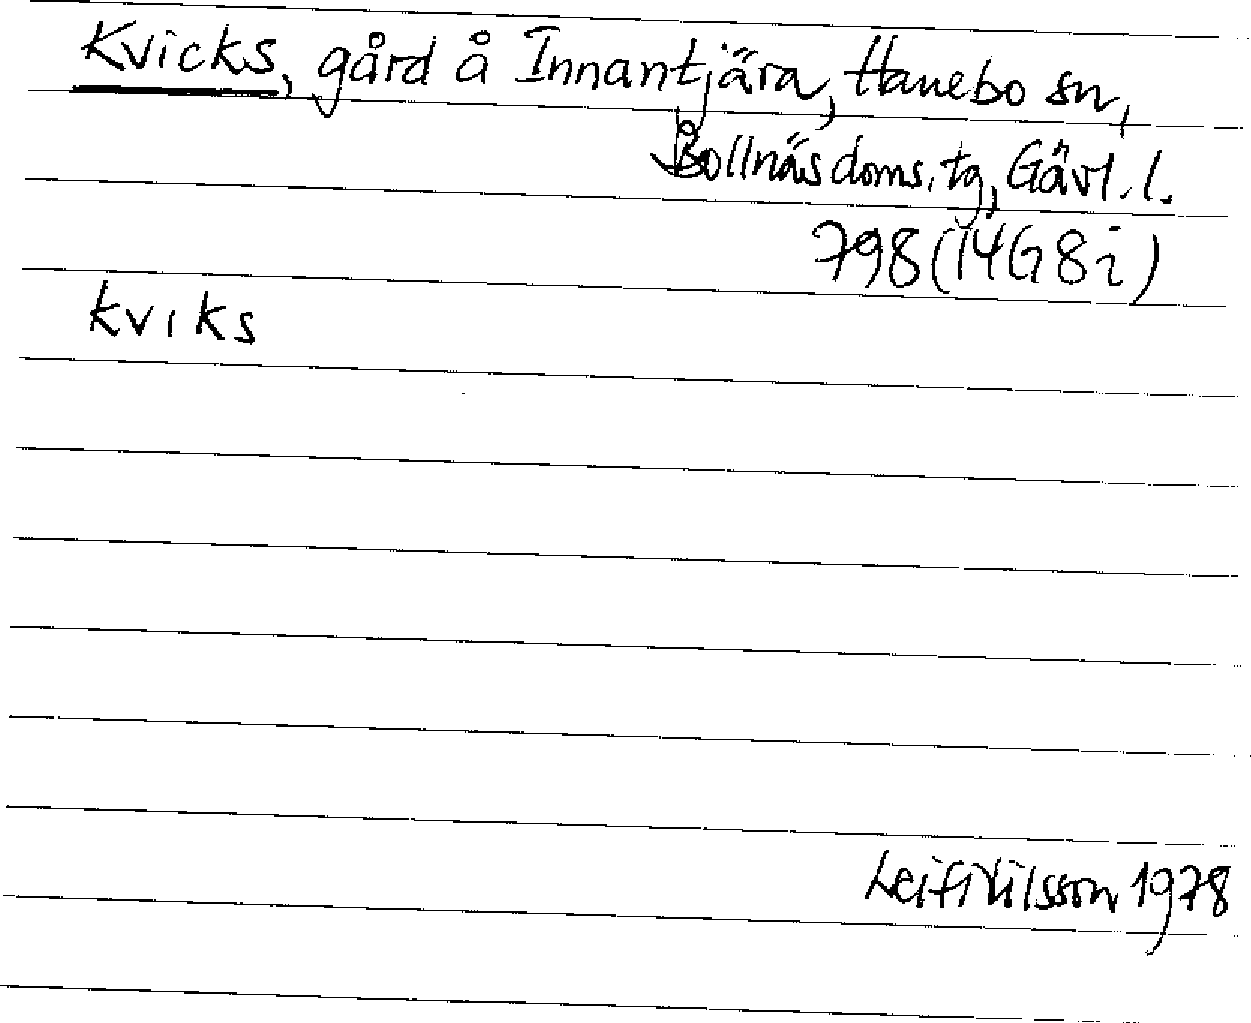 Kvicks, gård å Innantjära, Hanebo sn,
Bollnäs doms. tg, Gävl. l.
798 (14G 8i)
kvıks
Leif Nilsson 1978